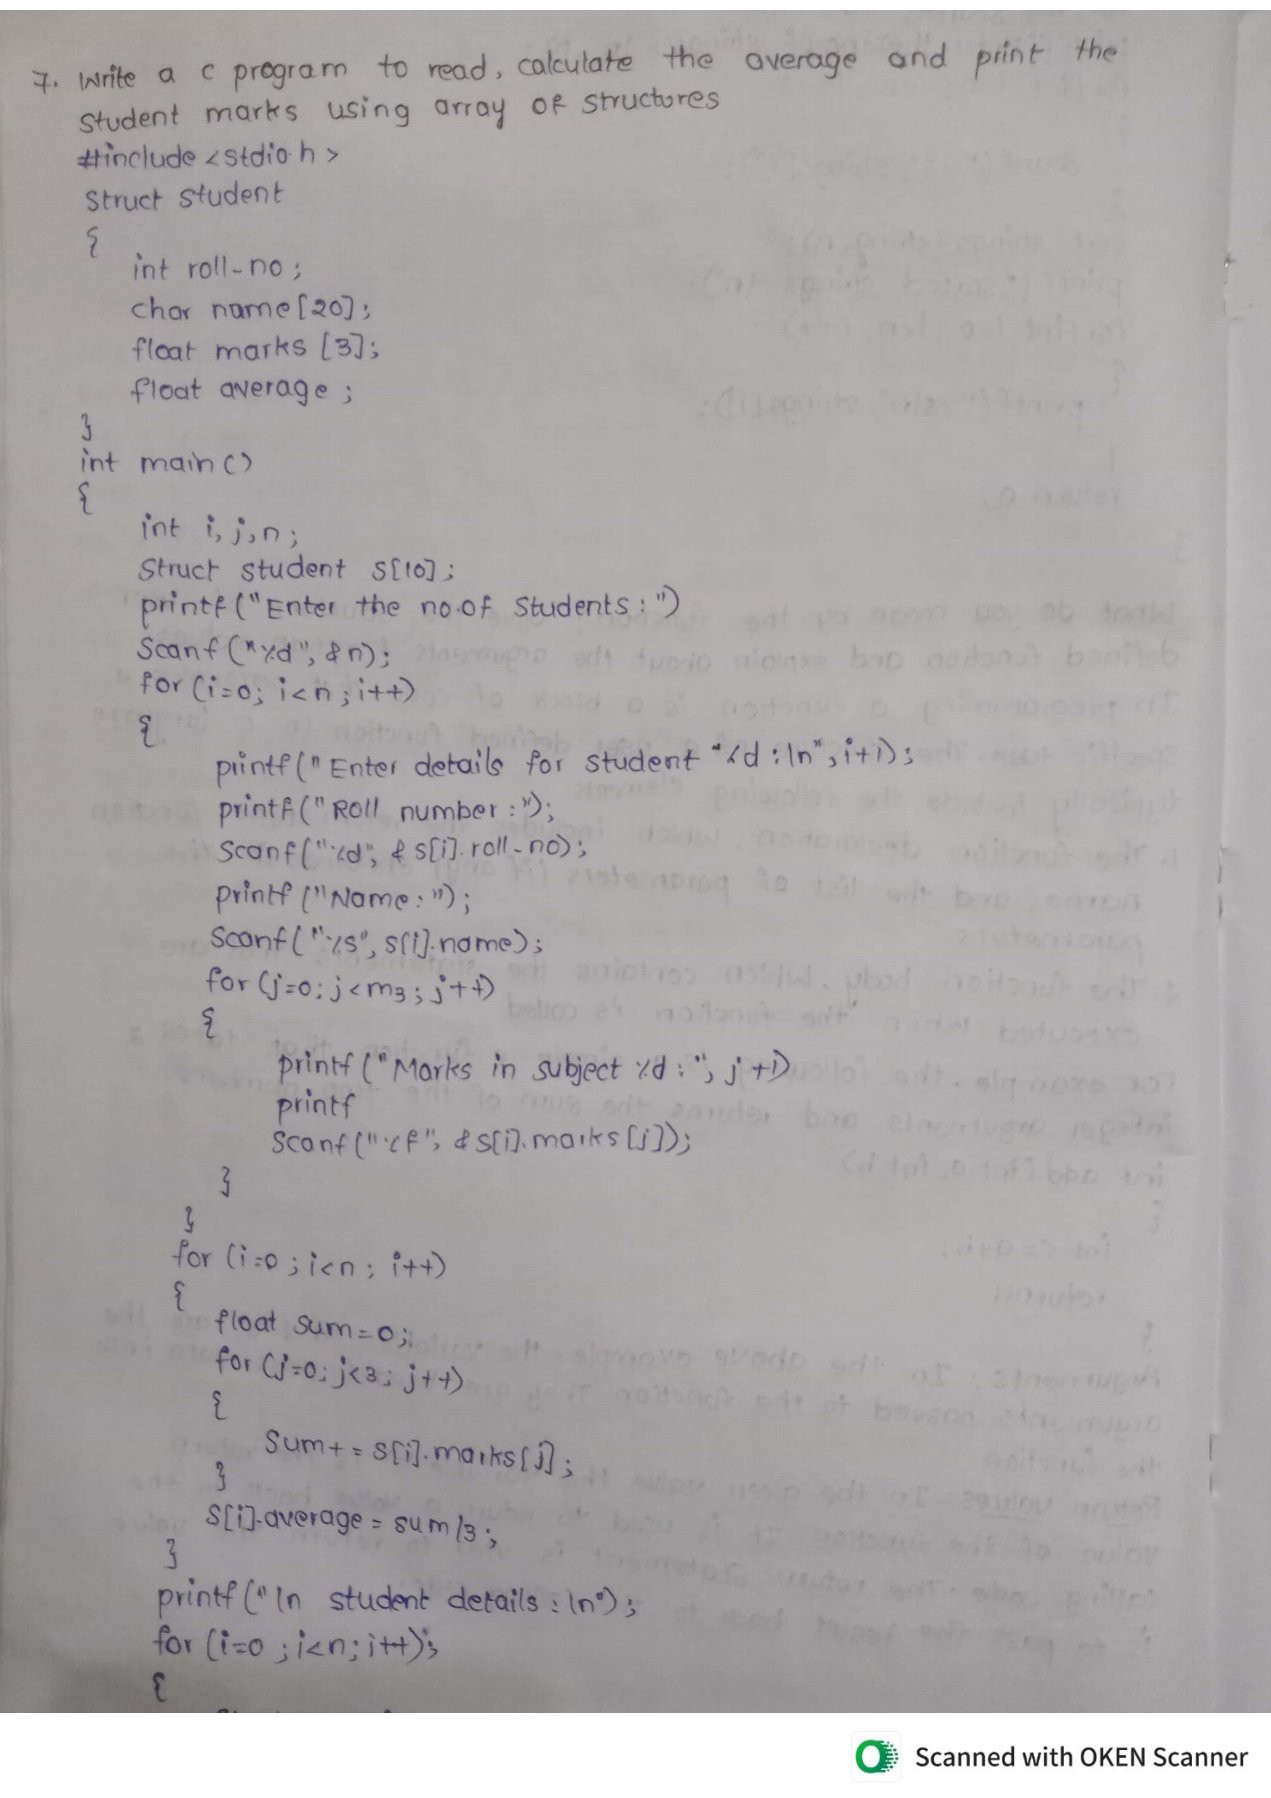 7. Write a c program to read, calculate the average and print the
student marks using array of structures
#include <stdio.h>
Struct student
{
int roll-no;
char name[20];
float marks [3];
float average;
}
int main()
{
int i, j, n;
Struct student s[10];
printf("Enter the no.of Students : ")
Scanf("%d", &n);
for (i=0; i<n; i++)
{
printf("Enter details for student "%d :\n", i+1);
printf("Roll number :");
Scanf("%d", &s[i].roll-no);
printf("Name: ");
Scanf("%s", s[i].name);
for (j=0; j<m3; j++)
{
printf("Marks in subject %d : ", j+1)
printf
Scanf("%f", &s[i].marks[j]);
}
}
for (i=0; i<n; i++)
{
float sum=0;
for (j=0; j<3; j++)
{
Sum+= s[i].marks[j];
}
S[i].average = sum/3;
}
printf("\n student details : \n");
for (i=0; i<n; i++);
{
Scanned with OKEN Scanner